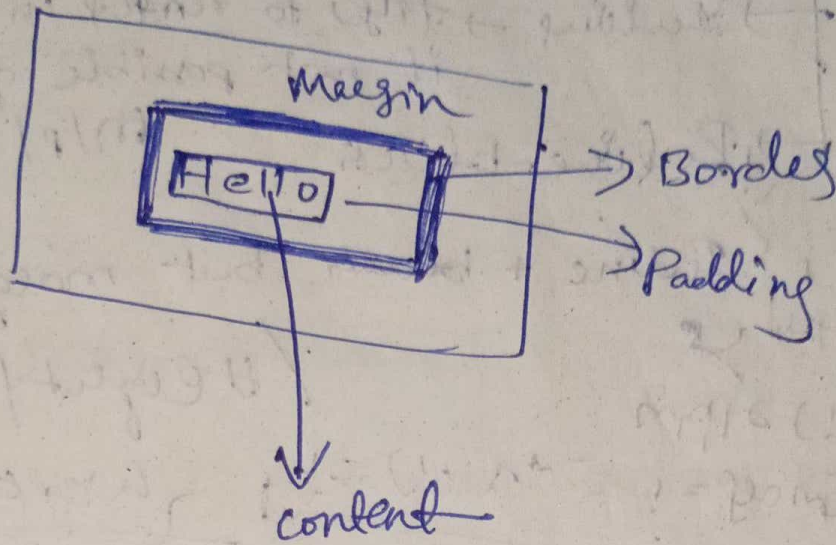 Margin
Hello
Border
Padding
content